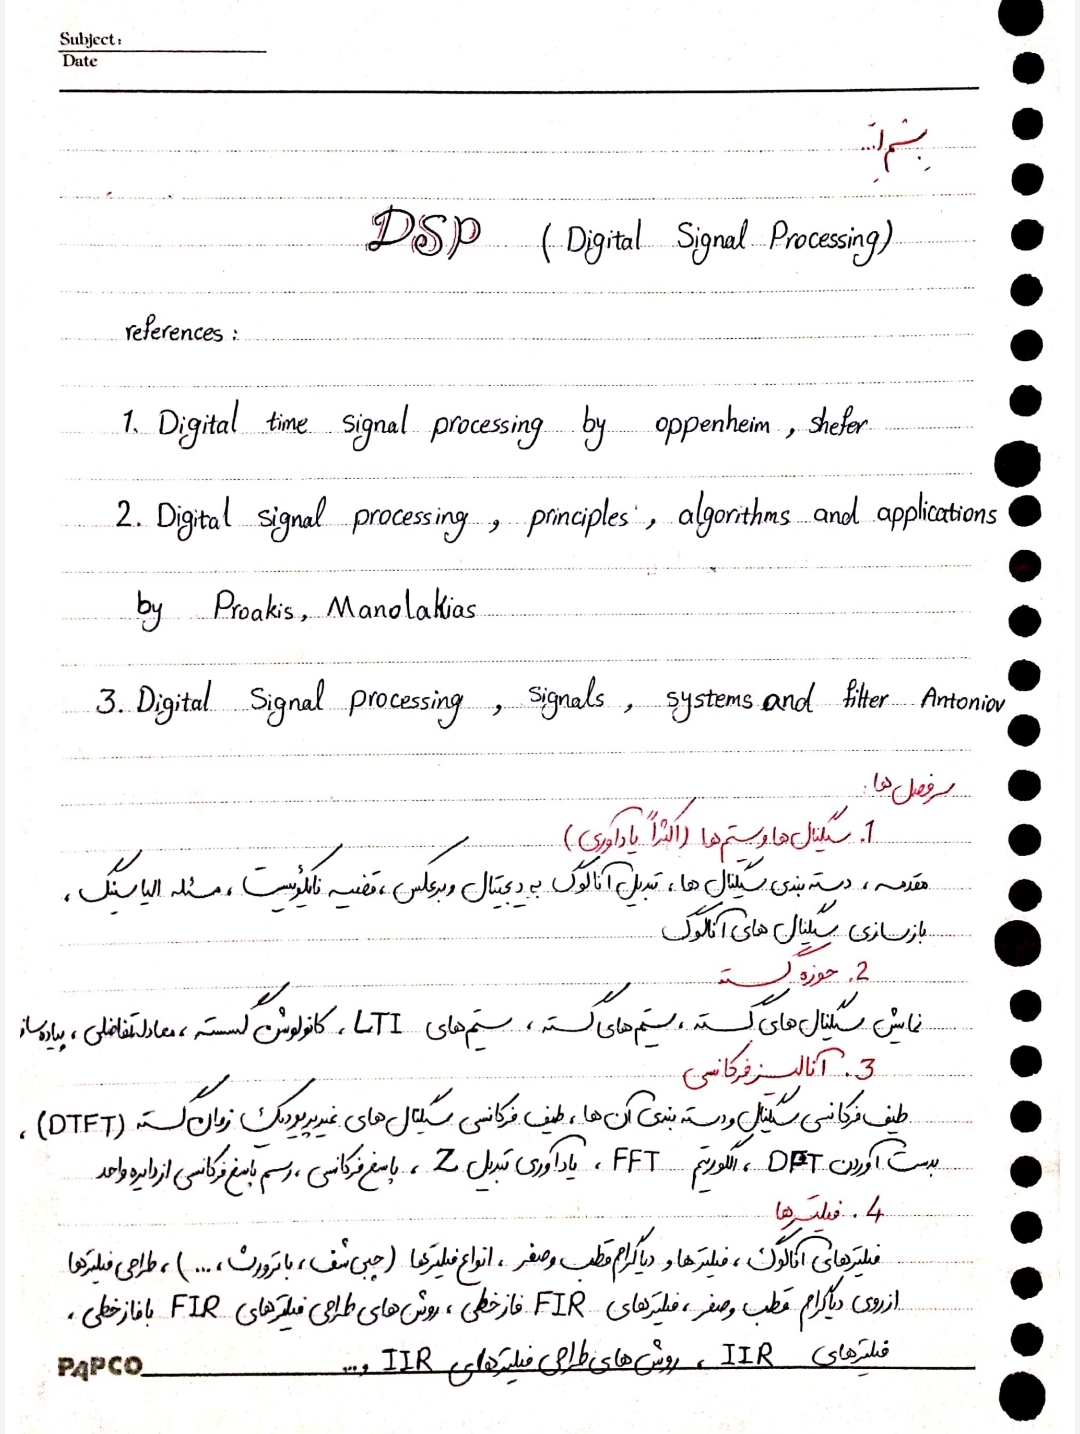 Subject:
Date
بسم ا...
DSP (Digital Signal Processing)
references :
1. Digital time signal processing by oppenheim , shefer
2. Digital signal processing , principles , algorithms and applications
by Proakis, Manolakias
3. Digital Signal processing , signals , systems and filter Antoniov
سرفصل ها:
1. سیگنال ها و سیستم ها (اکثراً یادآوری)
مقدمه ، دسته بندی سیگنال ها ، تبدیل آنالوگ به دیجیتال و برعکس ، قضیه نایکوئیست ، مسئله الیاسینگ ،
بازسازی سیگنال های آنالوگ
2. حوزه گسسته
نمایش سیگنال های گسسته ، سیستم های گسسته ، سیستم های LTI ، کانولوشن گسسته ، معادله تفاضلی ، پیاده ساز
3. آنالیز فرکانسی
طیف فرکانسی سیگنال و دسته بندی آن ها ، طیف فرکانسی سیگنال های غیرپریودیک زمان گسسته (DTFT) ،
بدست آوردن DFT ، الگوریتم FFT ، یادآوری تبدیل Z ، پاسخ فرکانسی ، رسم پاسخ فرکانسی از دایره واحد
4. فیلترها
فیلترهای آنالوگ ، فیلترها و دیاگرام قطب و صفر ، انواع فیلترها (چبی شف ، باترورث ، ...) ، طراحی فیلترها
از روی دیاگرام قطب و صفر ، فیلترهای FIR فاز خطی ، روش های طراحی فیلترهای FIR با فاز خطی ،
فیلترهای IIR ، روش های طراحی فیلترهای IIR و ...
PAPCO